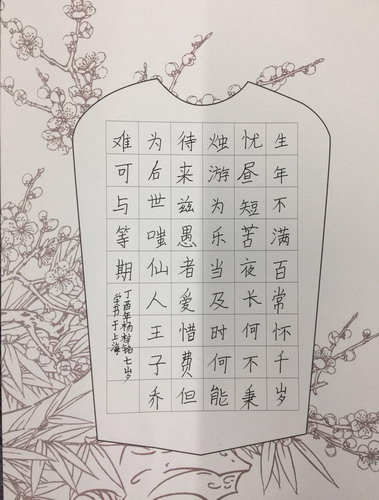 生年不满百常怀千岁
忧昼短苦夜长何不秉
烛游为乐当及时何能
待来兹愚者爱惜费但
为后世嗤仙人王子乔
难可与等期
丁酉年杨七岁
学书于上海